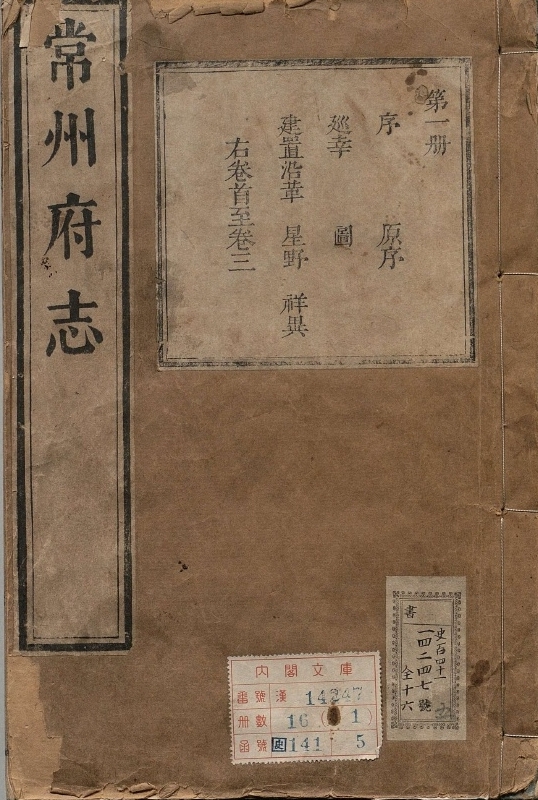 常州府志
第一册
序 原序
巡幸 圖
建置沿革 星野 祥異
右卷首至卷三
書
史百四十一
一四二四七號
全十六
内閣文庫
番號 漢 14247
册數 16 (1)
函號 史 141 5